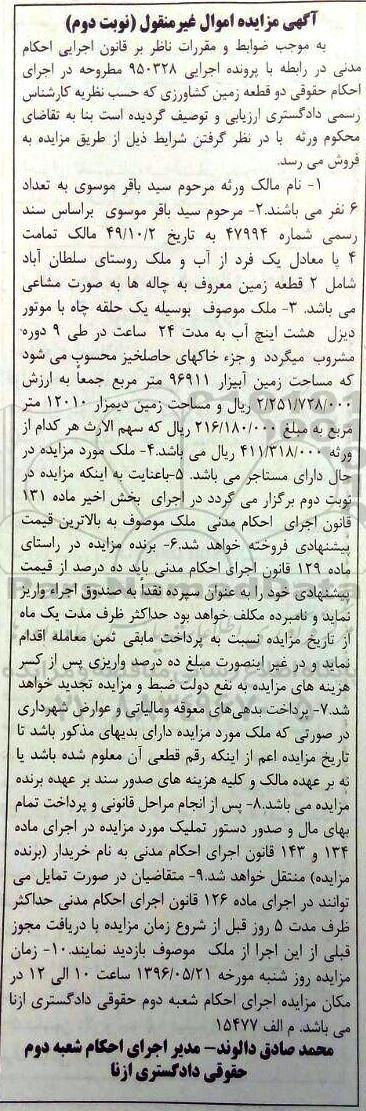 آگهی مزایده اموال غیرمنقول (نوبت دوم)
به موجب ضوابط و مقررات ناظر بر قانون اجرایی احکام
مدنی در رابطه با پرونده اجرایی ۹۵۰۳۲۸ مطروحه در اجرای
احکام حقوقی دو قطعه زمین کشاورزی که حسب نظریه کارشناس
رسمی دادگستری ارزیابی و توصیف گردیده است بنا به تقاضای
محکوم ورثه با در نظر گرفتن شرایط ذیل از طریق مزایده به
فروش می رسد.
۱- نام مالک ورثه مرحوم سید باقر موسوی به تعداد
۶ نفر می باشند.۲- مرحوم سید باقر موسوی براساس سند
رسمی شماره ۴۷۹۹۴ به تاریخ ۴۹/۱۰/۲ مالک تمامت
۴ پا معادل یک فرد از آب و ملک روستای سلطان آباد
شامل ۲ قطعه زمین معروف به چاله ها به صورت مشاعی
می باشد. ۳- ملک موصوف بوسیله یک حلقه چاه با موتور
دیزل هشت اینچ آب به مدت ۲۴ ساعت در طی ۹ دوره
مشروب میگردد و جزء خاکهای حاصلخیز محسوب می شود
که مساحت زمین آبیزار ۹۶۹۱۱ متر مربع جمعاً به ارزش
۲/۲۵۱/۷۲۸/۰۰۰ ریال و مساحت زمین دیمزار ۱۲۰۱۰ متر
مربع به مبلغ ۲۱۶/۱۸۰/۰۰۰ ریال که سهم الارث هر کدام از
ورثه ۴۱۱/۳۱۸/۰۰۰ ریال می باشد.۴- ملک مورد مزایده در
حال دارای مستاجر می باشد. ۵-باعنایت به اینکه مزایده در
نوبت دوم برگزار می گردد در اجرای بخش اخیر ماده ۱۳۱
قانون اجرای احکام مدنی ملک موصوف به بالاترین قیمت
پیشنهادی فروخته خواهد شد.۶- برنده مزایده در راستای
ماده ۱۲۹ قانون اجرای احکام مدنی باید ده درصد از قیمت
پیشنهادی خود را به عنوان سپرده نقداً به صندوق اجراء واریز
نماید و نامبرده مکلف خواهد بود حداکثر ظرف مدت یک ماه
از تاریخ مزایده نسبت به پرداخت مابقی ثمن معامله اقدام
نماید و در غیر اینصورت مبلغ ده درصد واریزی پس از کسر
هزینه های مزایده به نفع دولت ضبط و مزایده تجدید خواهد
شد.۷- پرداخت بدهی‌های معوقه ومالیاتی و عوارض شهرداری
در صورتی که ملک مورد مزایده دارای بدیهای مذکور باشد تا
تاریخ مزایده اعم از اینکه رقم قطعی آن معلوم شده باشد یا
نه بر عهده مالک و کلیه هزینه های صدور سند بر عهده برنده
مزایده می باشد.۸- پس از انجام مراحل قانونی و پرداخت تمام
بهای مال و صدور دستور تملیک مورد مزایده در اجرای ماده
۱۳۴ و ۱۴۳ قانون اجرای احکام مدنی به نام خریدار (برنده
مزایده) منتقل خواهد شد.۹- متقاضیان در صورت تمایل می
توانند در اجرای ماده ۱۲۶ قانون اجرای احکام مدنی حداکثر
ظرف مدت ۵ روز قبل از شروع زمان مزایده با دریافت مجوز
قبلی از این اجرا از ملک موصوف بازدید نمایند.۱۰- زمان
مزایده روز شنبه مورخه ۱۳۹۶/۰۵/۲۱ ساعت ۱۰ الی ۱۲ در
مکان مزایده اجرای احکام شعبه دوم حقوقی دادگستری ازنا
می باشد. م الف ۱۵۴۷۷
محمد صادق دالوند- مدیر اجرای احکام شعبه دوم
حقوقی دادگستری ازنا